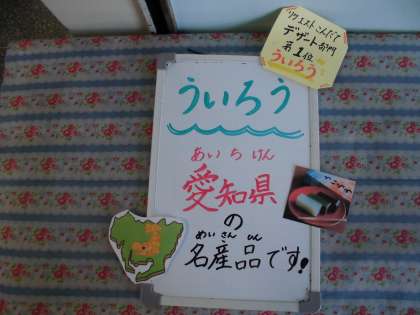 リクエストこんだて
デザート部門
第1位
ういろう
ういろう
あいちけん
愛知県
の
めいさんひん
名産品です!